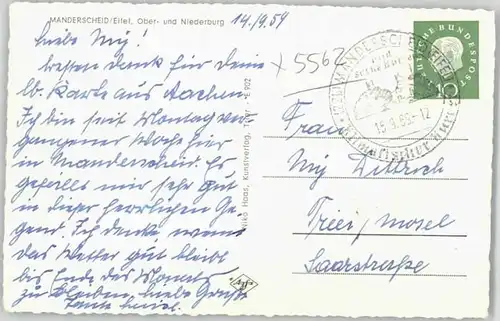 MANDERSCHEID/Eifel, Ober- und Niederburg
14./9.59
Liebe Mig!
besten Dank für Deine
lb. Karte aus Aachen.
Ich bin seit Montag ver-
gangener Woche hier
in Manderscheid. Es
gefällt mir sehr gut
in dieser herrlichen Ge-
gend. Ich denke, wenn
das Wetter gut bleibt
bis Ende des Monats
zu bleiben. Liebe Grüße
x 5562
DEUTSCHE BUNDESPOST
10
MANDERSCHEID
-12
Frau
Mig Dittrich
Trier/Mosel
Saarstraße
Haas, Kunstverlag, Trier E 902
Agfa